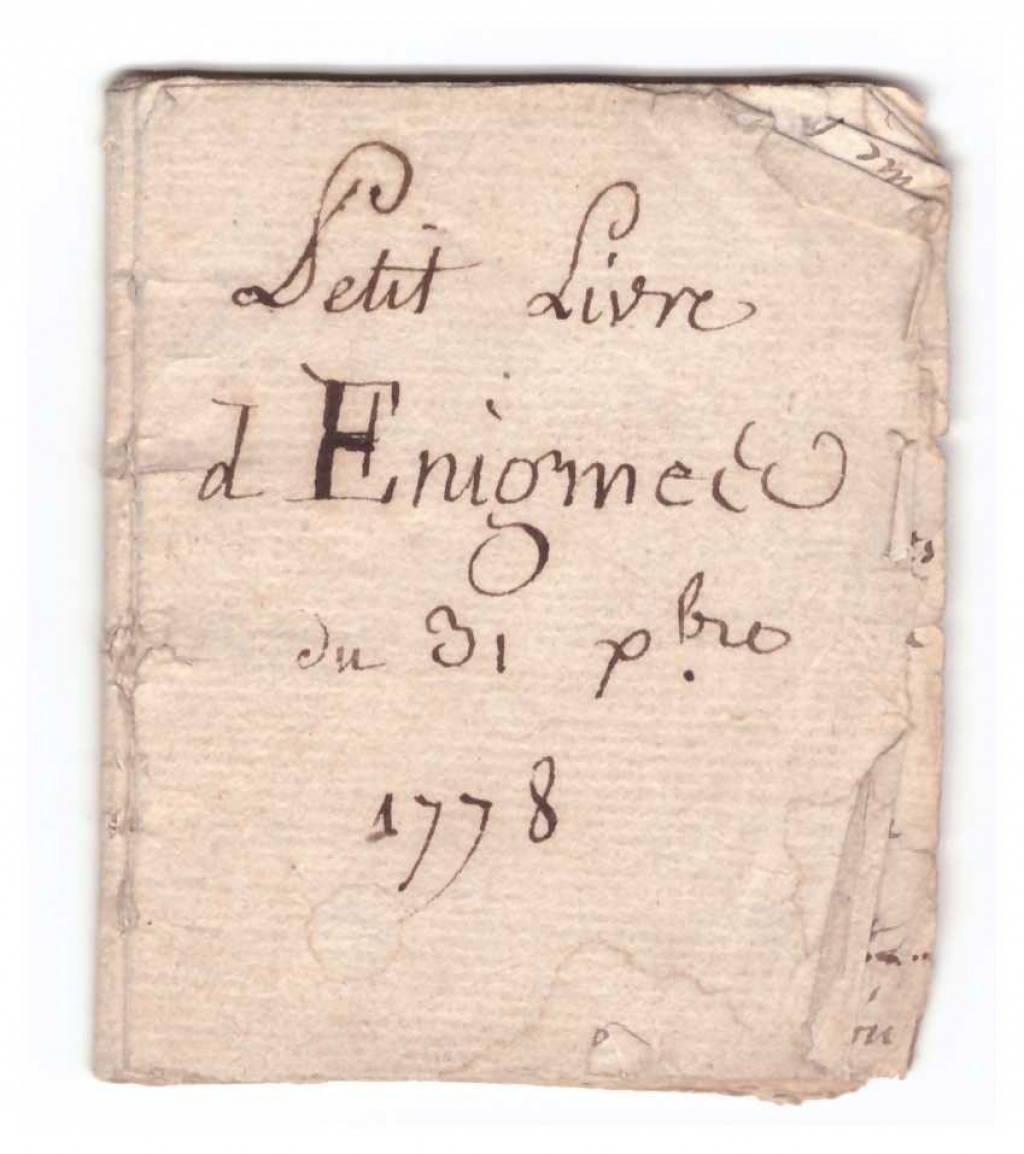 Petit Livre
d Enigmes
du 31 xbre
1778